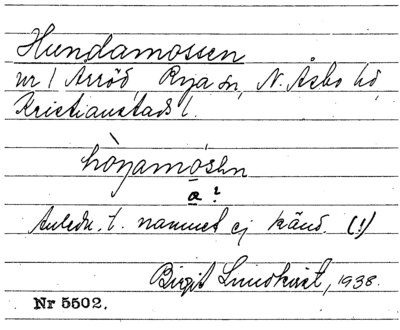 Hundamossen
nr 1 Arröd, Rya sn, N. Åsbo hd,
Kristianstads l.
hòṉamósẹn
a?
Anledn. t. namnet ej känd. (!)
Birgit Lundkvist, 1938.
Nr 5502.